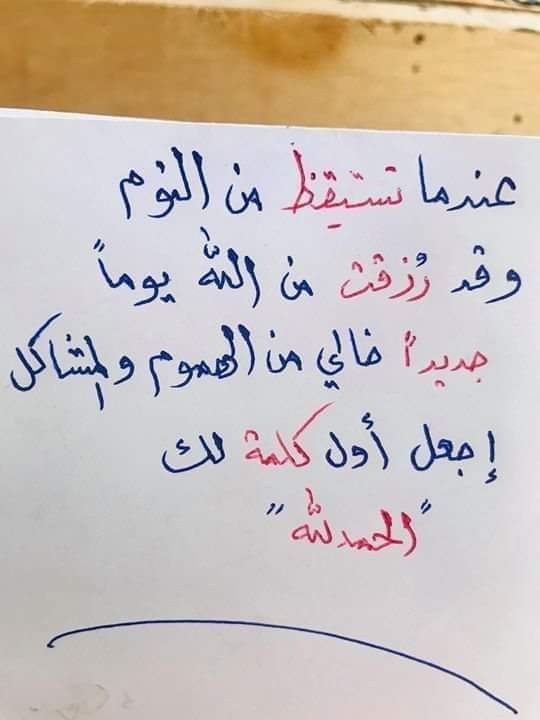 عندما تستيقظ من النوم
وقد رُزقت من الله يوماً
جديداً خالي من الهموم والمشاكل
إجعل أول كلمة لك
"الحمدلله"